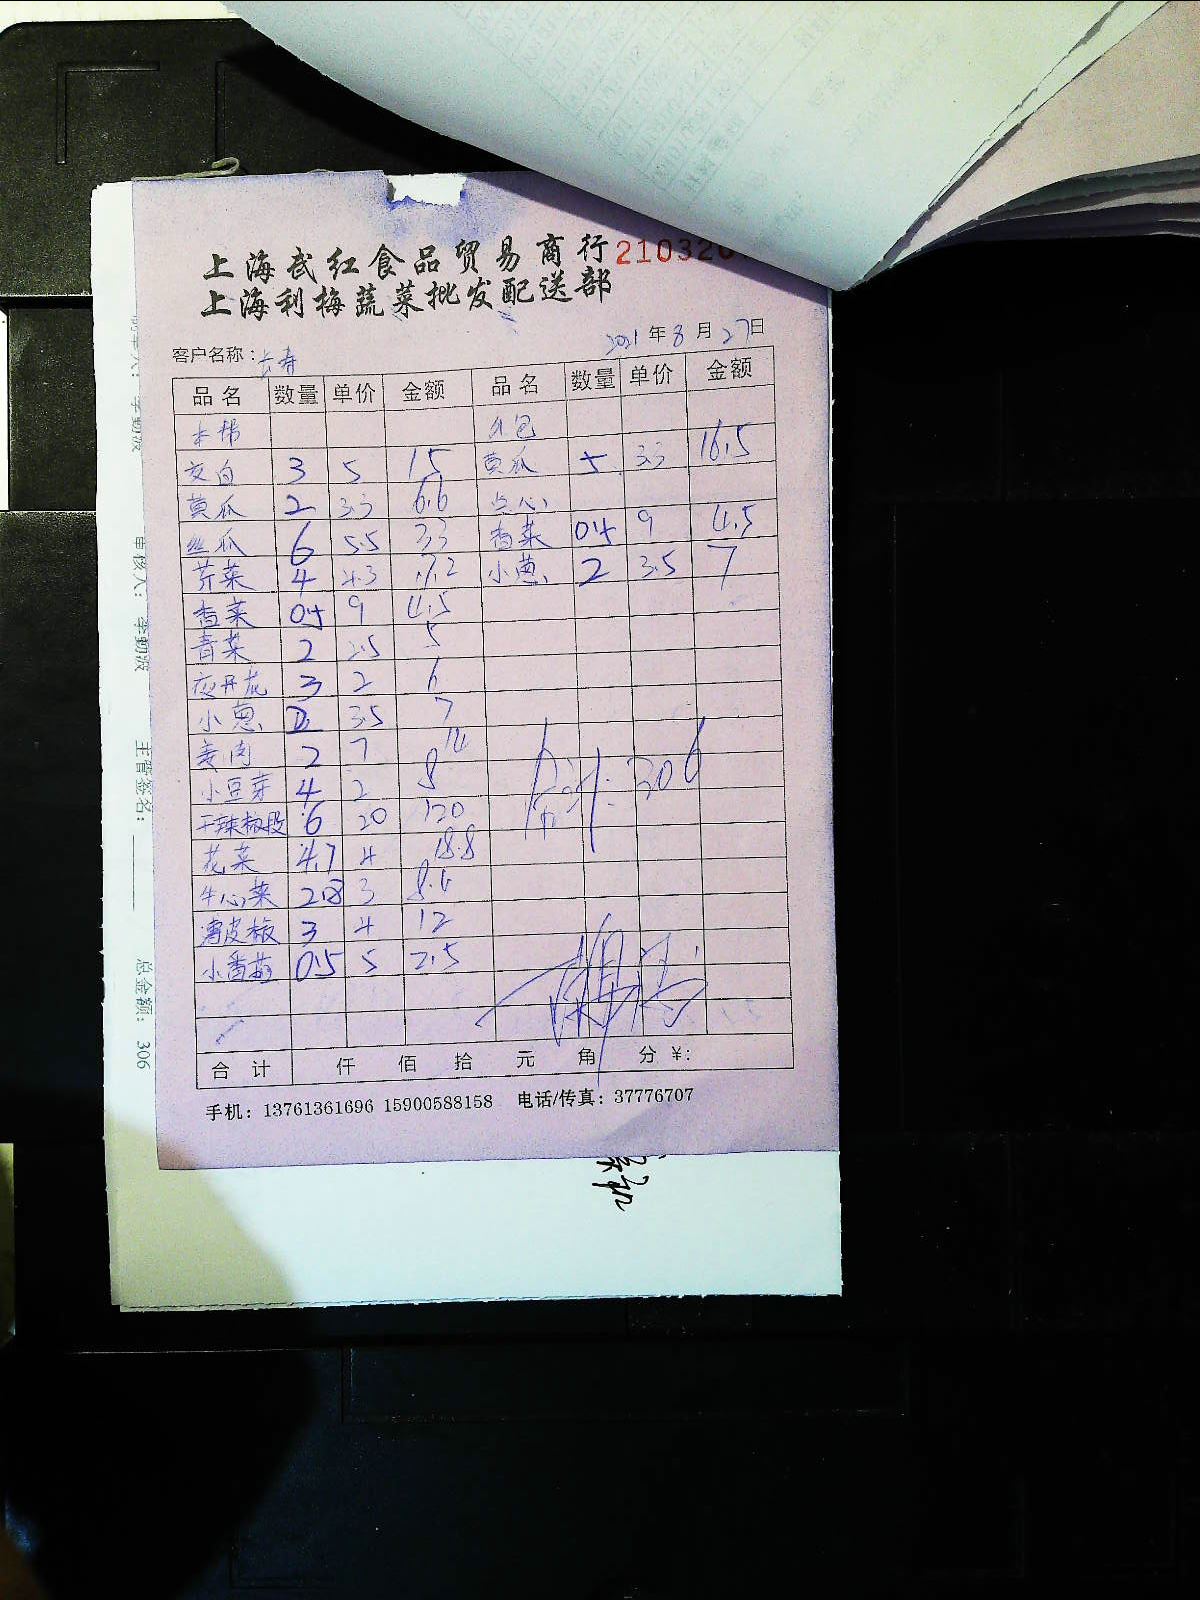 上海武红食品贸易商行 210326
上海利梅蔬菜批发配送部
客户名称：长寿 2021年3月27日
品名 数量 单价 金额 品名 数量 单价 金额
本帮 外包
茭白 3 5 15 黄瓜 5 3.3 16.5
黄瓜 2 3.3 6.6 点心
丝瓜 6 5.5 33 香菜 0.5 9 4.5
芹菜 4 4.3 17.2 小葱 2 3.5 7
香菜 0.5 9 4.5
青菜 2 2.5 5
夜开花 3 2 6
小葱 2 3.5 7
姜肉 2 7 14
小豆芽 4 2 8
干辣椒段 6 20 120
花菜 4.7 4 18.8
牛心菜 2.8 3 8.4
薄皮椒 3 4 12
小番茄 0.5 5 2.5
合计：306
合计 仟 佰 拾 元 角 分 ¥:
手机：13761361696 15900588158 电话/传真：37776707
审核人： 李勤波
主管签名：
总金额： 306